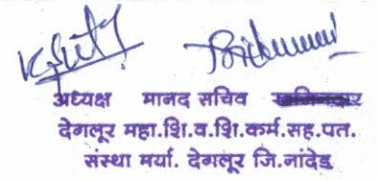 अध्यक्ष मानद सचिव
देगलूर महा.शि.व.शि.कर्म.सह.पत.
संस्था मर्या. देगलूर जि.नांदेड